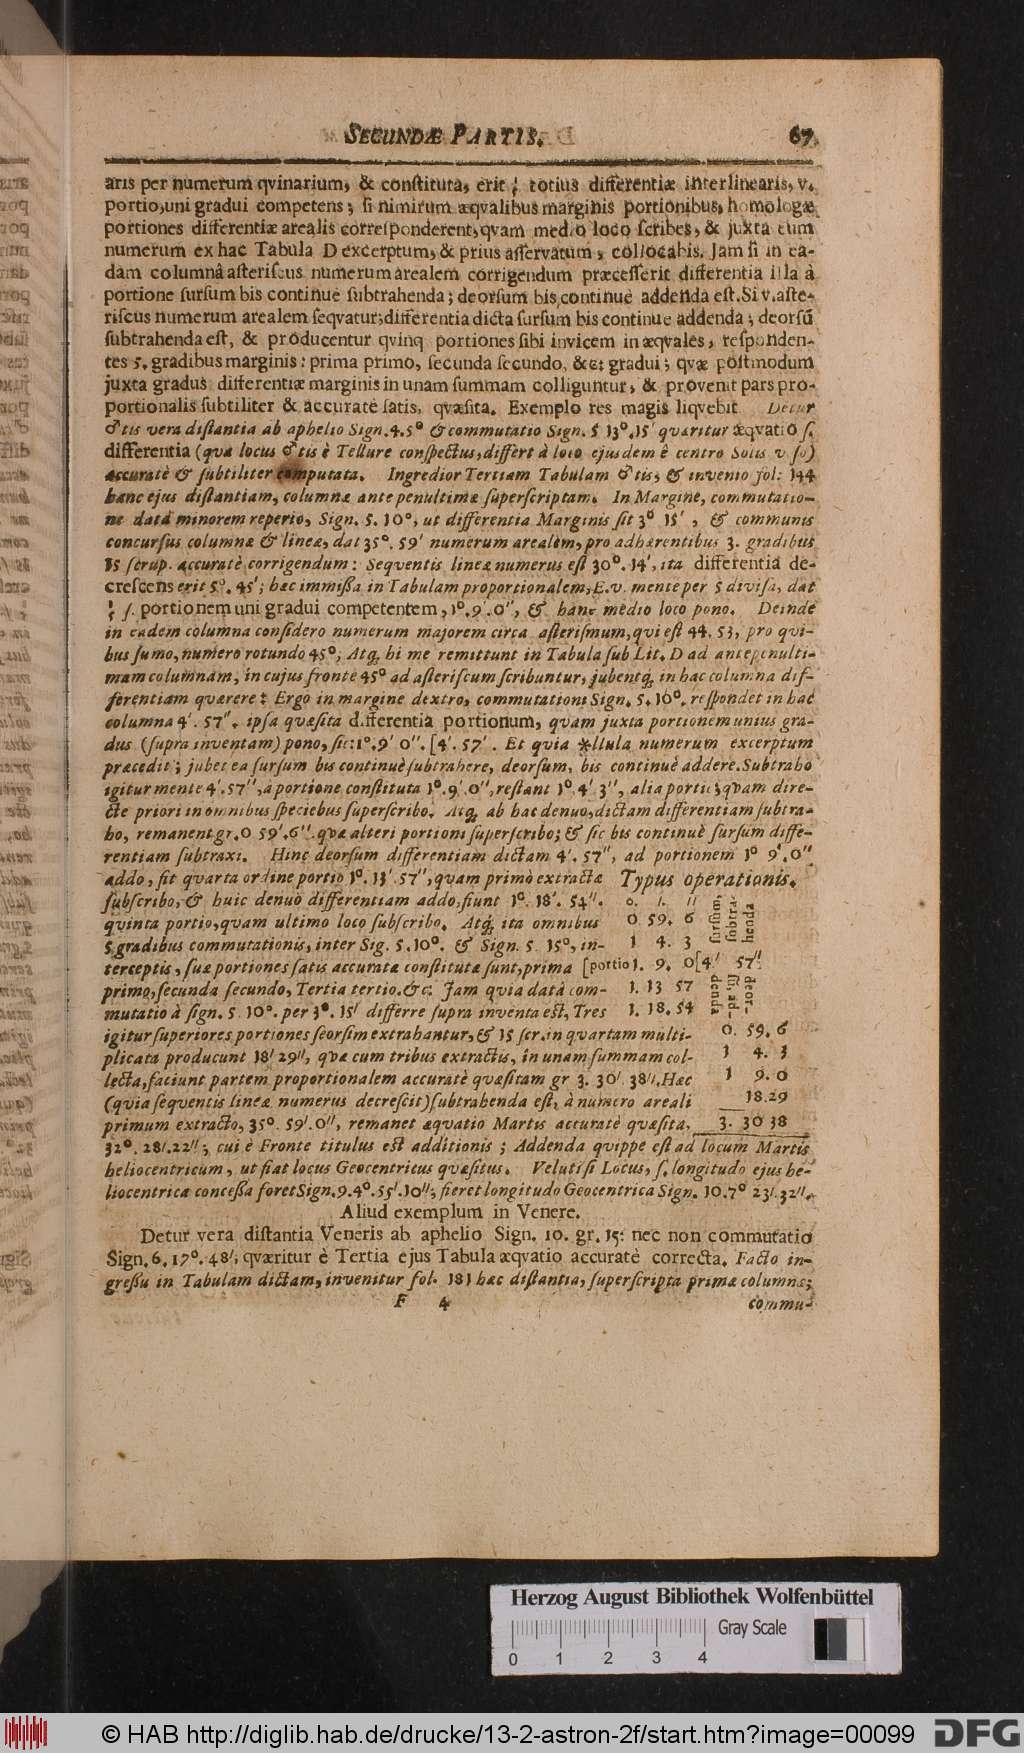 SECUNDÆ PARTIS. 67
aris per numerum qvinarium, & conſtituta, erit totius differentiæ interlinearis, v.
portio, uni gradui competens; ſi nimirum æqvalibus marginis portionibus, homologæ
portiones differentiæ arealis correſponderent, qvam medio loco ſcribes, & juxta eum
numerum ex hac Tabula D excerptum, & prius aſſervatum, collocabis. Jam ſi in ea-
dam columnâ aſteriſcus numerum arealem corrigendum præceſſerit differentia illa à
portione ſurſum bis continuè ſubtrahenda; deorſum bis continuè addenda eſt. Si v. aſte-
riſcus numerum arealem ſeqvatur; differentia dicta ſurſum bis continue addenda; deorſũ
ſubtrahenda eſt, & producentur qvinq portiones ſibi invicem inæqvales, reſponden-
tes 5. gradibus marginis: prima primo, ſecunda ſecundo, &c: gradui; qvæ poſtmodum
juxta gradus differentiæ marginis in unam ſummam colliguntur, & provenit pars pro-
portionalis ſubtiliter & accuratè ſatis, qvæſita. Exemplo res magis liqvebit Detur
♂tis vera diſtantia ab aphelio Sign. 4. 5° & commutatio Sign. 5 13°. 15′ quæritur æqvatio ſ.
differentia (qua locus ♂tis è Tellure conſpectus, differt à loco ejusdem è centro Solis v. ſo)
accuratè & ſubtiliter computata. Ingredior Tertiam Tabulam ♂tis, & invenio fol: 144
hanc ejus diſtantiam, columnæ antepenultimæ ſuperſcriptam. In Margine, commutatio-
ne datâ minorem reperio, Sign. 5. 10°, ut differentia Marginis ſit 3° 15′, & communis
concurſus columnæ & lineæ, dat 35°. 59′ numerum arealem, pro adhærentibus 3. gradibus
15 ſcrup. accuratè corrigendum: Seqventis lineæ numerus eſt 30°. 14′, ita differentia de-
creſcens erit 5°. 45′; hæc immiſſa in Tabulam proportionalem, E. v. mente per 5 diviſa, dat
ſ. portionem uni gradui competentem, 1°. 9′. 0″, & hanc medio loco pono. Deinde
in eadem columna conſidero numerum majorem circa aſteriſmum, qui eſt 44. 53, pro qvi-
bus ſumo, numero rotundo 45°; Atq; hi me remittunt in Tabula ſub Lit. D ad antepenulti-
mam columnam, in cujus fronte 45° ad aſteriſcum ſcribuntur, jubentq; in hac columna dif-
ferentiam quærere: Ergo in margine dextro, commutationi Sign. 5. 10°. reſpondet in hac
columna 4′. 57″. ipſa quæſita differentia portionum, quam juxta portionem unius gra-
dus (ſupra inventam) pono, ſic: 1°. 9′ 0″. [4′. 57′. Et quia ✻llula numerum excerptum
præcedit; jubet ea ſurſum bis continuè ſubtrahere, deorſum, bis continuè addere. Subtraho
igitur mente 4′. 57″, a portione conſtituta 1°. 9′. 0″, reſtant 1°. 4′ 3″, alia portio; qvam dire-
cte priori in omnibus ſpeciebus ſuperſcribo. Atq; ab hac denuo, dictam differentiam ſubtra-
ho, remanent gr. 0 59′. 6″. qvæ alteri portioni ſuperſcribo; & ſic bis continuè ſurſum diffe-
rentiam ſubtraxi. Hinc deorſum differentiam dictam 4′. 57″, ad portionem 1° 9′. 0″
addo, ſit quarta ordine portio 1°. 13′. 57″, quam primò extractæ
ſubſcribo, & huic denuò differentiam addo, fiunt 1°. 18′. 54″.
quinta portio, quam ultimo loco ſubſcribo. Atq; ita omnibus
5 gradibus commutationis, inter Sig. 5. 10°. & Sign. 5. 15°, in-
terceptis, ſuæ portiones ſatis accuratæ conſtitutæ ſunt, prima
primo, ſecunda ſecundo, Tertia tertio. &c. Jam quia datâ com-
mutatio à ſign. 5. 10°. per 3°. 15′ differre ſupra inventa eſt, Tres
igitur ſuperiores portiones ſeorſim extrahantur, & 15 ſcr. in quartam multi-
plicata producunt 18′ 29″, qvæ cum tribus extractis, in unam ſummam col-
lecta, faciunt partem proportionalem accuratè quæſitam gr 3. 30′ 38″. Hæc
(quia ſeqventis lineæ numerus decreſcit) ſubtrahenda eſt, à numero areali
primum extracto, 35°. 59′. 0″, remanet æquatio Martis accuratè quæſita,
Typus operationis.
0. ′. ″
0 59. 6
1 4. 3
[portio 1. 9. 0 [4.′ 57″.
1. 13 57
1. 18. 54
ſurſum, ſubtra-henda
deor-ſū, ad-denda
0. 59. 6
1 4. 3
1 9. 0
18. 29
3. 30 38
32°. 28′. 22″; cui è Fronte titulus eſt additionis; Addenda quippe eſt ad locum Martis
heliocentricum, ut fiat locus Geocentricus quæſitus. Veluti ſi Locus, ſ. longitudo ejus he-
liocentrica conceſſa foret Sign. 9. 4°. 55′. 10″; fieret longitudo Geocentrica Sign. 10. 7° 23′. 32″.
Aliud exemplum in Venere.
Detur vera diſtantia Veneris ab aphelio Sign. 10. gr. 15: nec non commutatio
Sign. 6. 17°. 48′; qværitur è Tertia ejus Tabula æqvatio accuratè correcta. Facto in-
greſſu in Tabulam dictam, invenitur fol. 181 hæc diſtantia, ſuperſcripta primæ columnæ;
F 4 commu-
Herzog August Bibliothek Wolfenbüttel
Gray Scale
0 1 2 3 4
© HAB http://diglib.hab.de/drucke/13-2-astron-2f/start.htm?image=00099
DFG